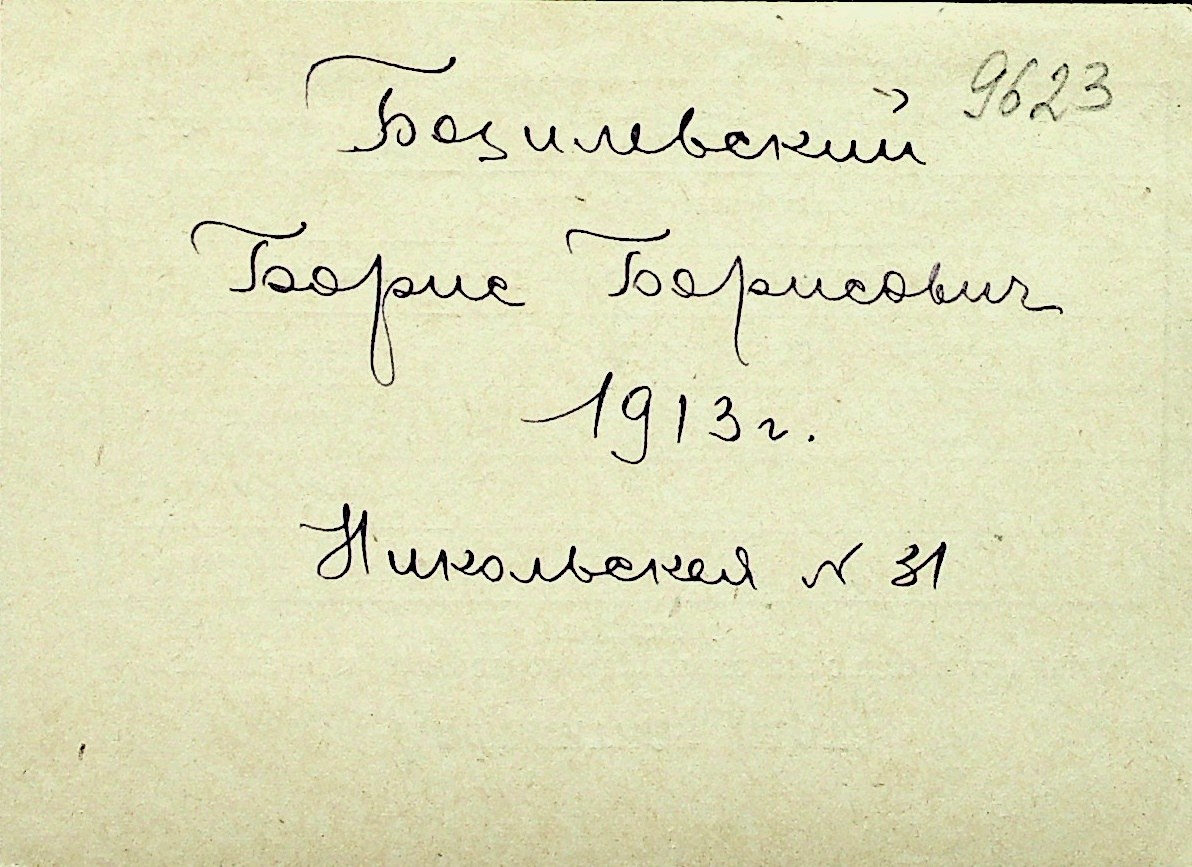 9623
Базилевский
Борис Борисович
1913 г.
Никольская № 31